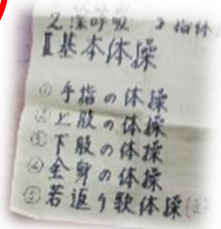 2.深呼吸 手指体
Ⅱ基本体操
① 手指の体操
② 上肢の体操
③ 下肢の体操
④ 全身の体操
⑤ 若返り歌体操